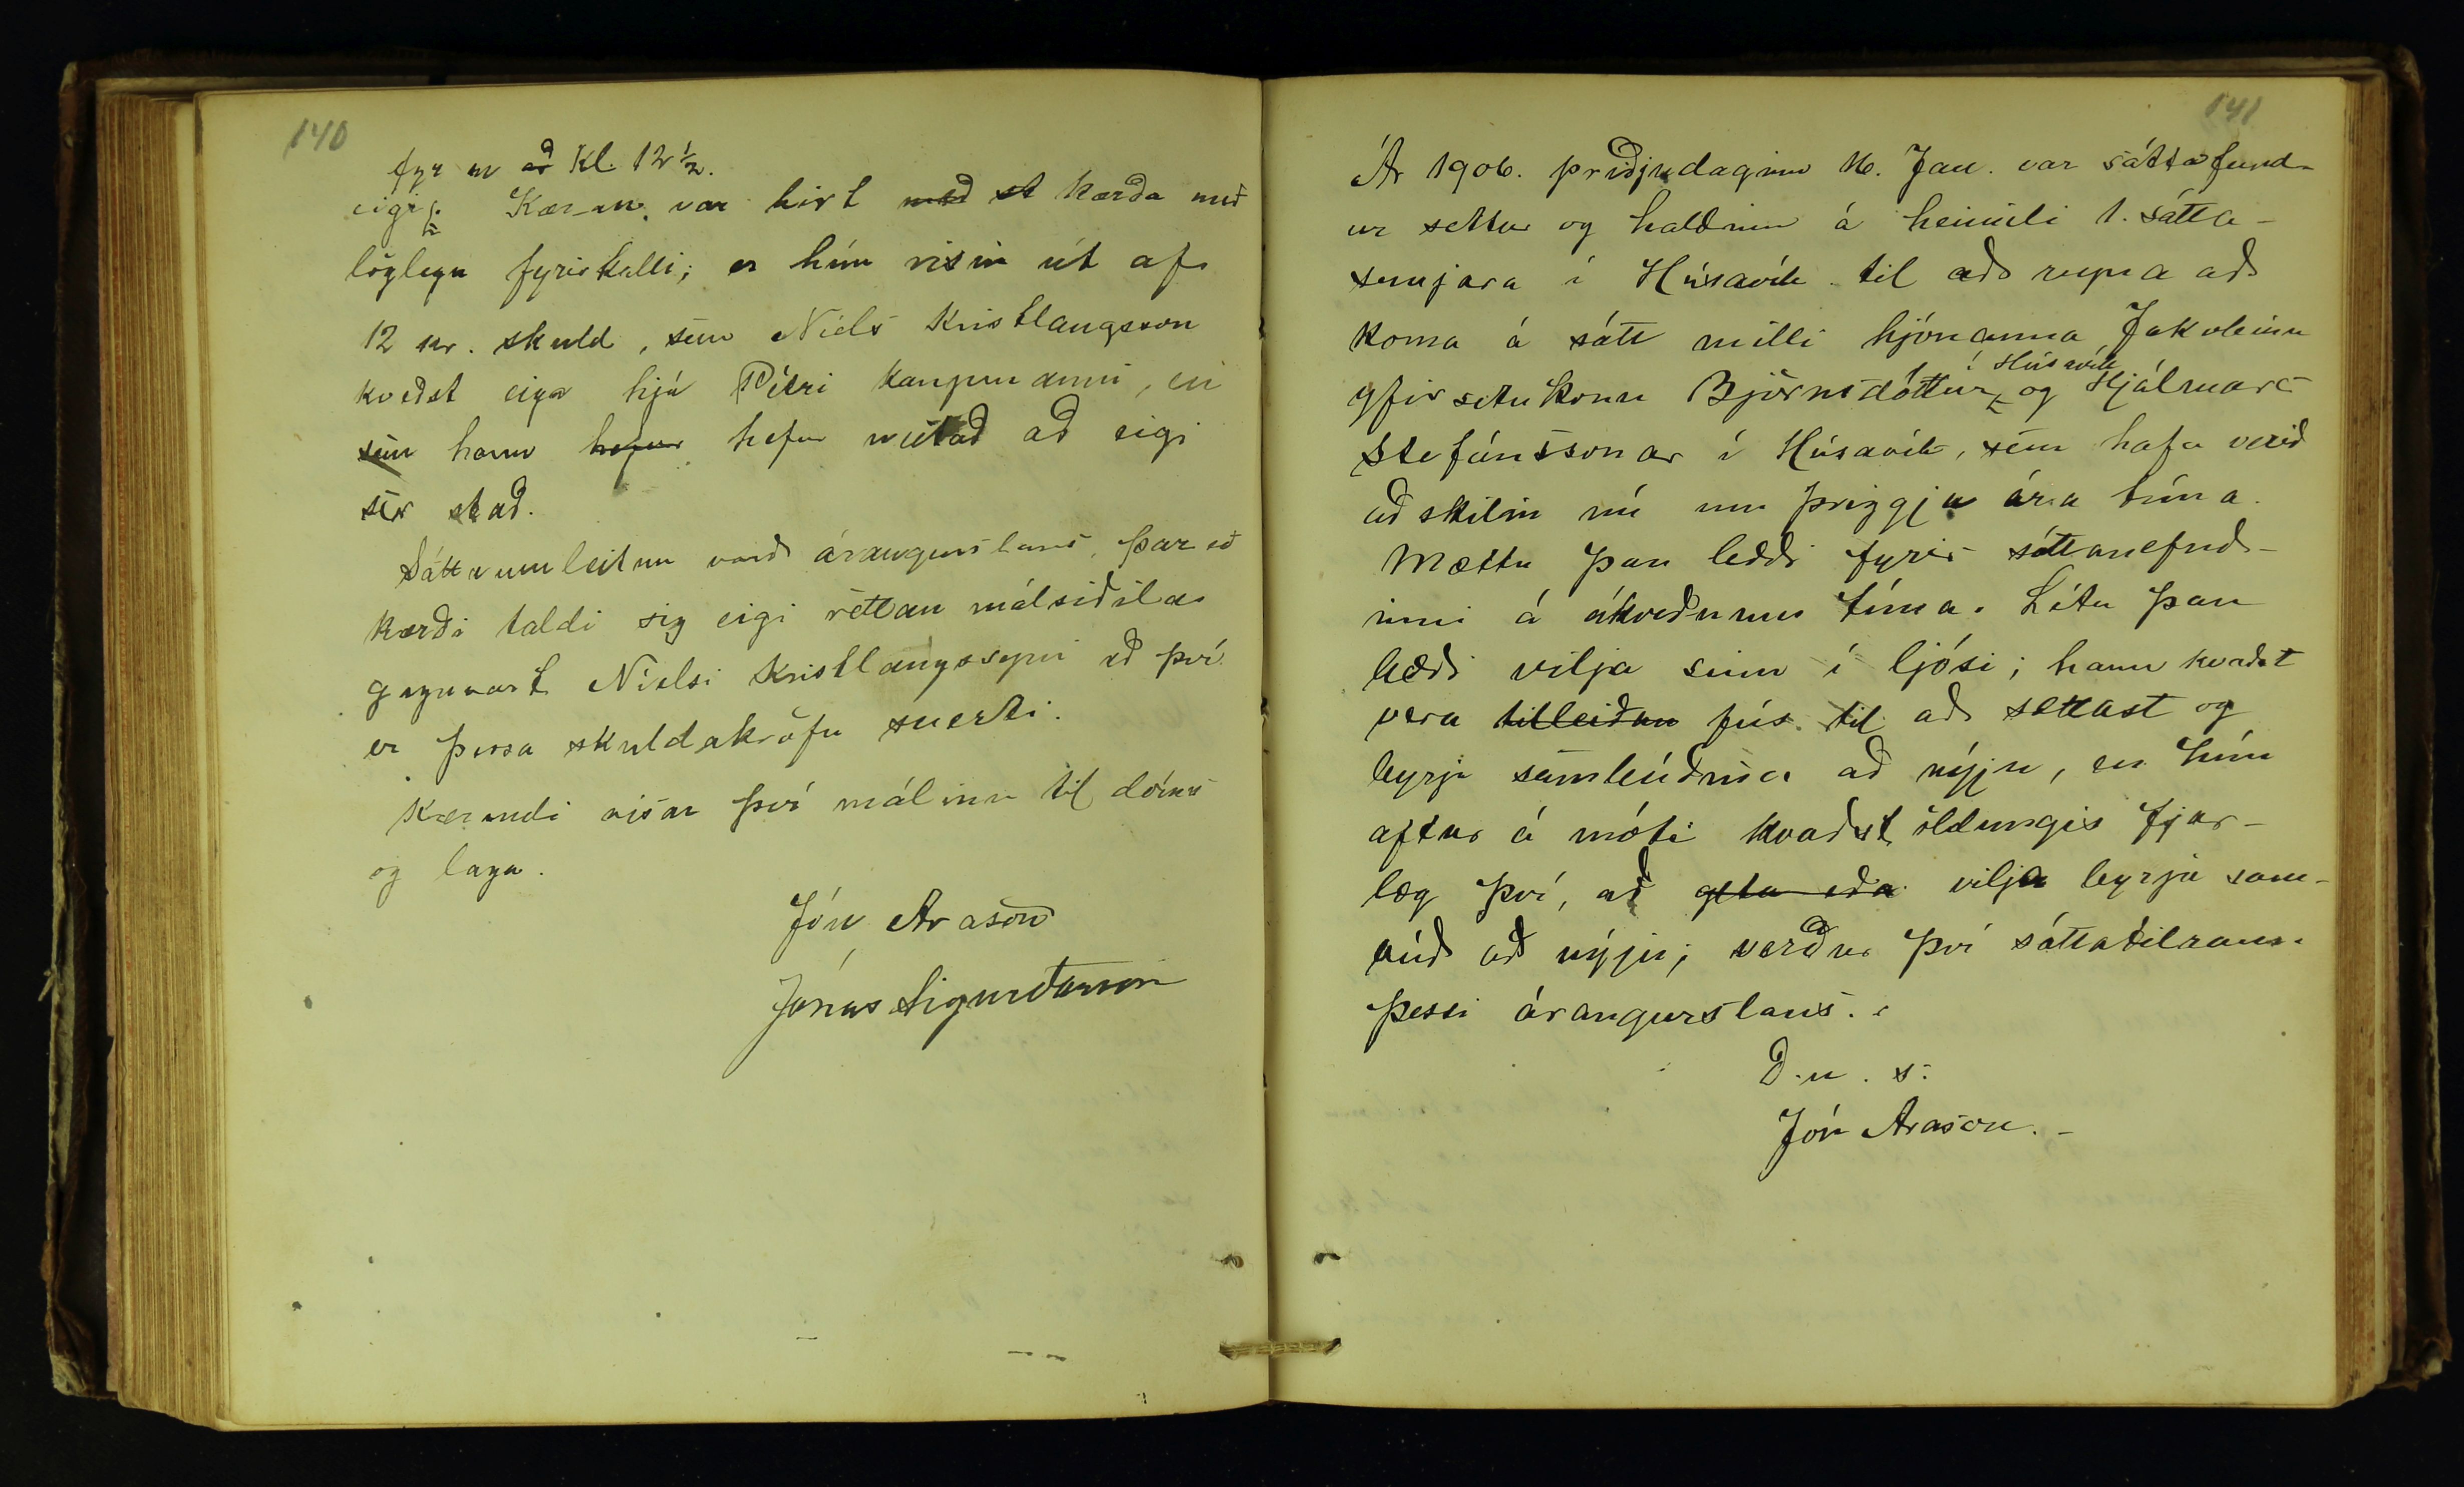 140
fyr en að Kl. 12 ½.
eigi. Kær-an, var birt með st kærða með
löglegu fyrirkalli; er hún risin út af
12 kr. skuld, sem Níels Kristlaugsson
kveðst eiga hjá Pétri kaupmanni, en
sem hann hefur hefur neitað að eigi
sér stað.
Sáttaumleitun varð árangurslaus, þar eð
kærði taldi sig eigi réttan málsaðila
gagnvart Níelsi Kristlaugssyni að því
er þessa skuldakröfu snerti.
Kærandi vísar því málinu til dóms
og laga.
Jón Arason
Jónas Sigurðsson
141
Ár 1906. þriðjudaginn 16. Jan. var sáttafund-
ur settur og haldinn á heimili 1. sátta-
semjara í Húsavík til að reyna að
koma á sátt milli hjónanna Jakobínu
í Húsavík
yfirsetukonu Björnsdóttur og Hjálmars
Stefánssonar í Húsavík, sem hafa verið
aðskilin nú um þriggja ára tíma.
Mættu þau bæði fyrir sáttanefnd-
inni á ákveðnum tíma. Létu þau
bæði vilja sinn í ljósi; hann kvaðst
vera tilleiðan fús til að sættast og
byrja sambúðina að nýju, en hún
aftur á móti kvaðst öldungis fjar-
læg því, að geta eða vilja byrja sam-
búð að nýju; verður því sáttatilraun
þessi árangurslaus.
D. u. s.
Jón Arason. -